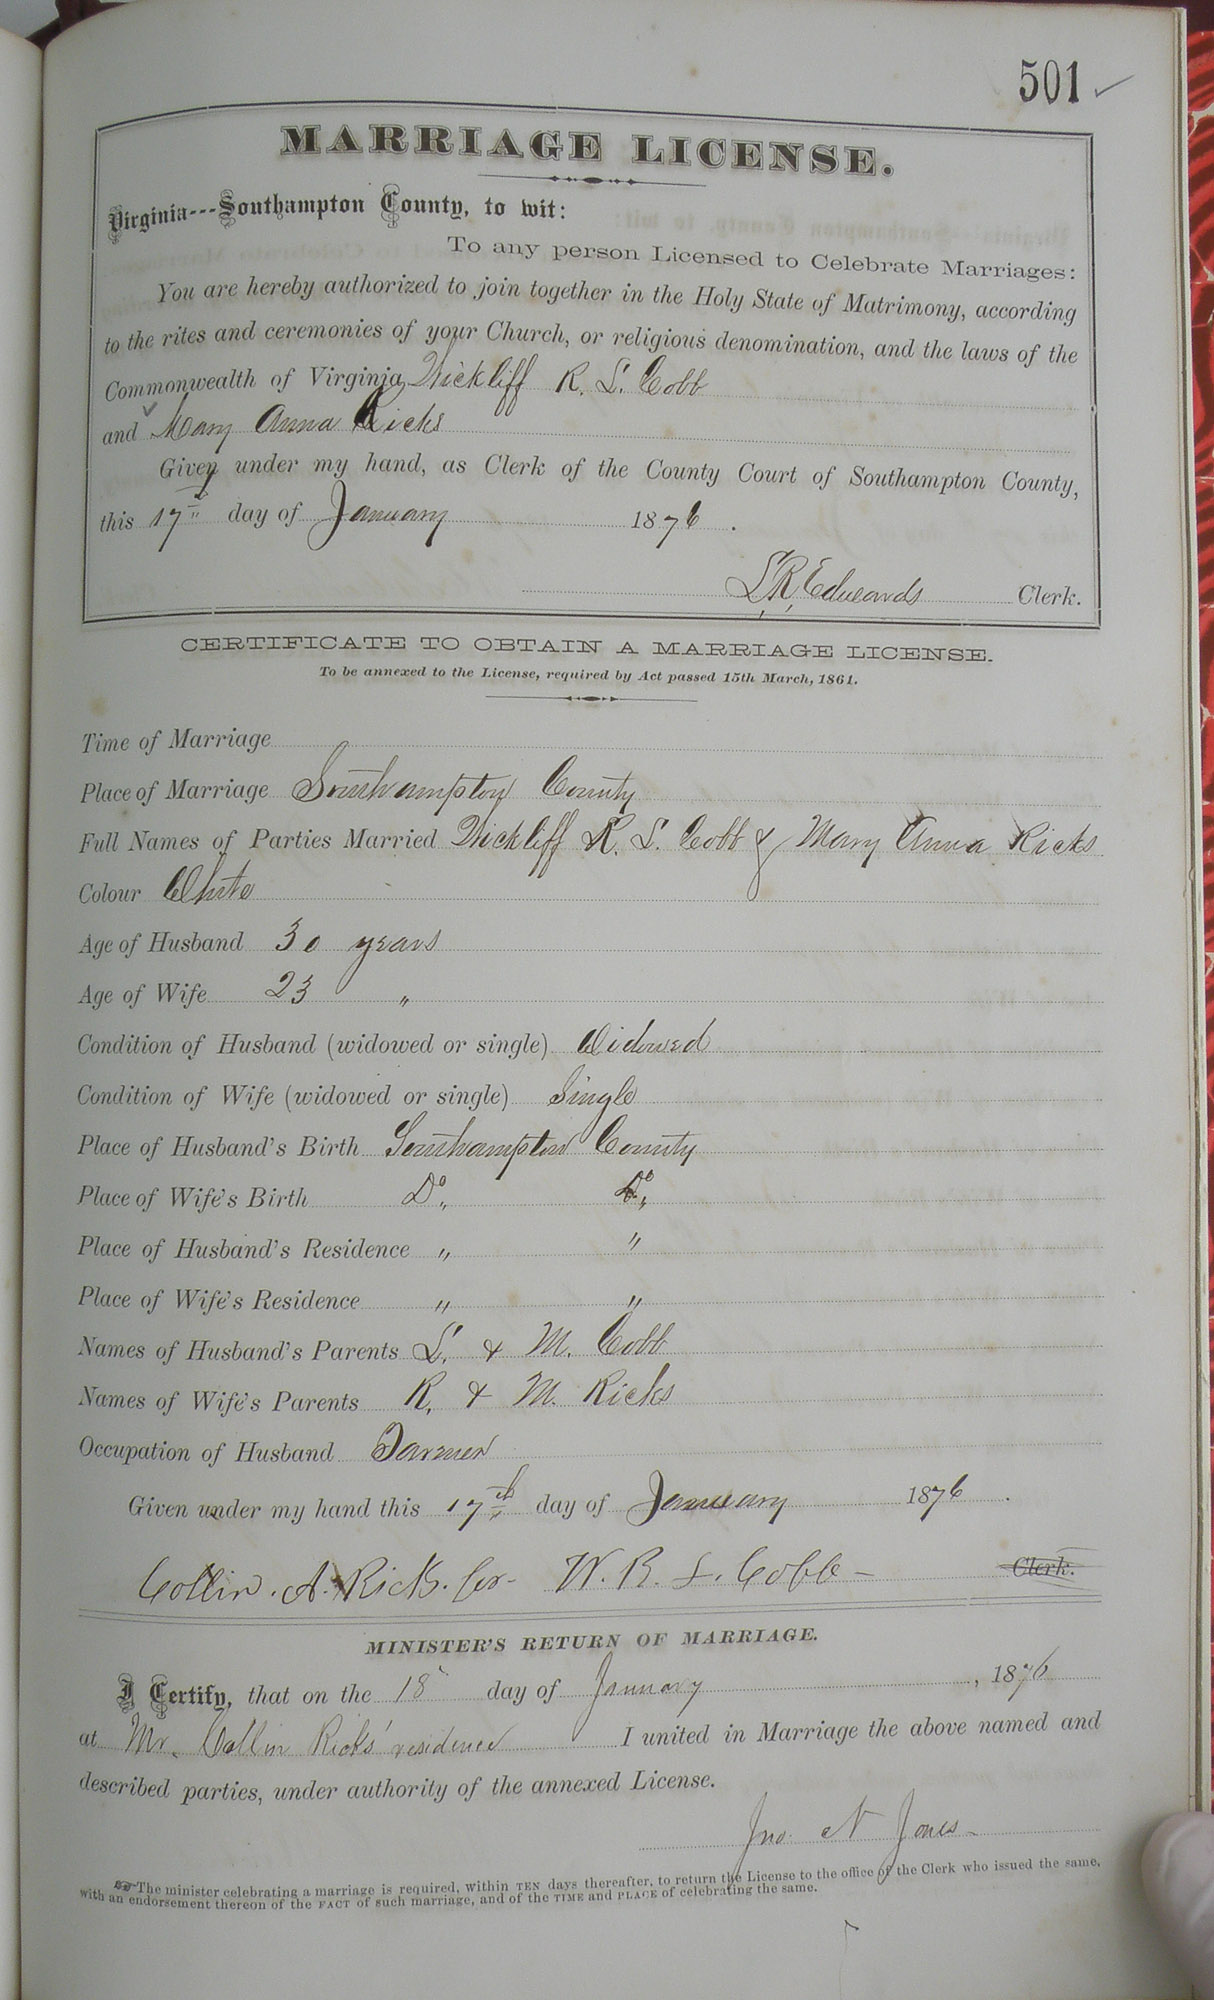 501
MARRIAGE LICENSE.
Virginia---Southampton County, to wit:
To any person Licensed to Celebrate Marriages:
You are hereby authorized to join together in the Holy State of Matrimony, according
to the rites and ceremonies of your Church, or religious denomination, and the laws of the
Commonwealth of Virginia, Wickliff R. S. Cobb
and Mary Anna Ricks
Given under my hand, as Clerk of the County Court of Southampton County,
this 17th day of January 1876.
L. R. Edwards Clerk.
CERTIFICATE TO OBTAIN A MARRIAGE LICENSE.
To be annexed to the License, required by Act passed 15th March, 1861.
Time of Marriage
Place of Marriage Southampton County
Full Names of Parties Married Wickliff R. S. Cobb & Mary Anna Ricks
Colour White
Age of Husband 30 years
Age of Wife 23 "
Condition of Husband (widowed or single) Widowed
Condition of Wife (widowed or single) Single
Place of Husband's Birth Southampton County
Place of Wife's Birth Do. Do.
Place of Husband's Residence " "
Place of Wife's Residence " "
Names of Husband's Parents S. & M. Cobb
Names of Wife's Parents R. & M. Ricks
Occupation of Husband Farmer
Given under my hand this 17th day of January 1876.
Collin. A. Ricks. for W. R. S. Cobb - Clerk.
MINISTER'S RETURN OF MARRIAGE.
I Certify, that on the 18 day of January, 1876
at Mr. Collin Ricks' residence I united in Marriage the above named and
described parties, under authority of the annexed License.
Jno. N Jones
The minister celebrating a marriage is required, within TEN days thereafter, to return the License to the office of the Clerk who issued the same,
with an endorsement thereon of the FACT of such marriage, and of the TIME and PLACE of celebrating the same.